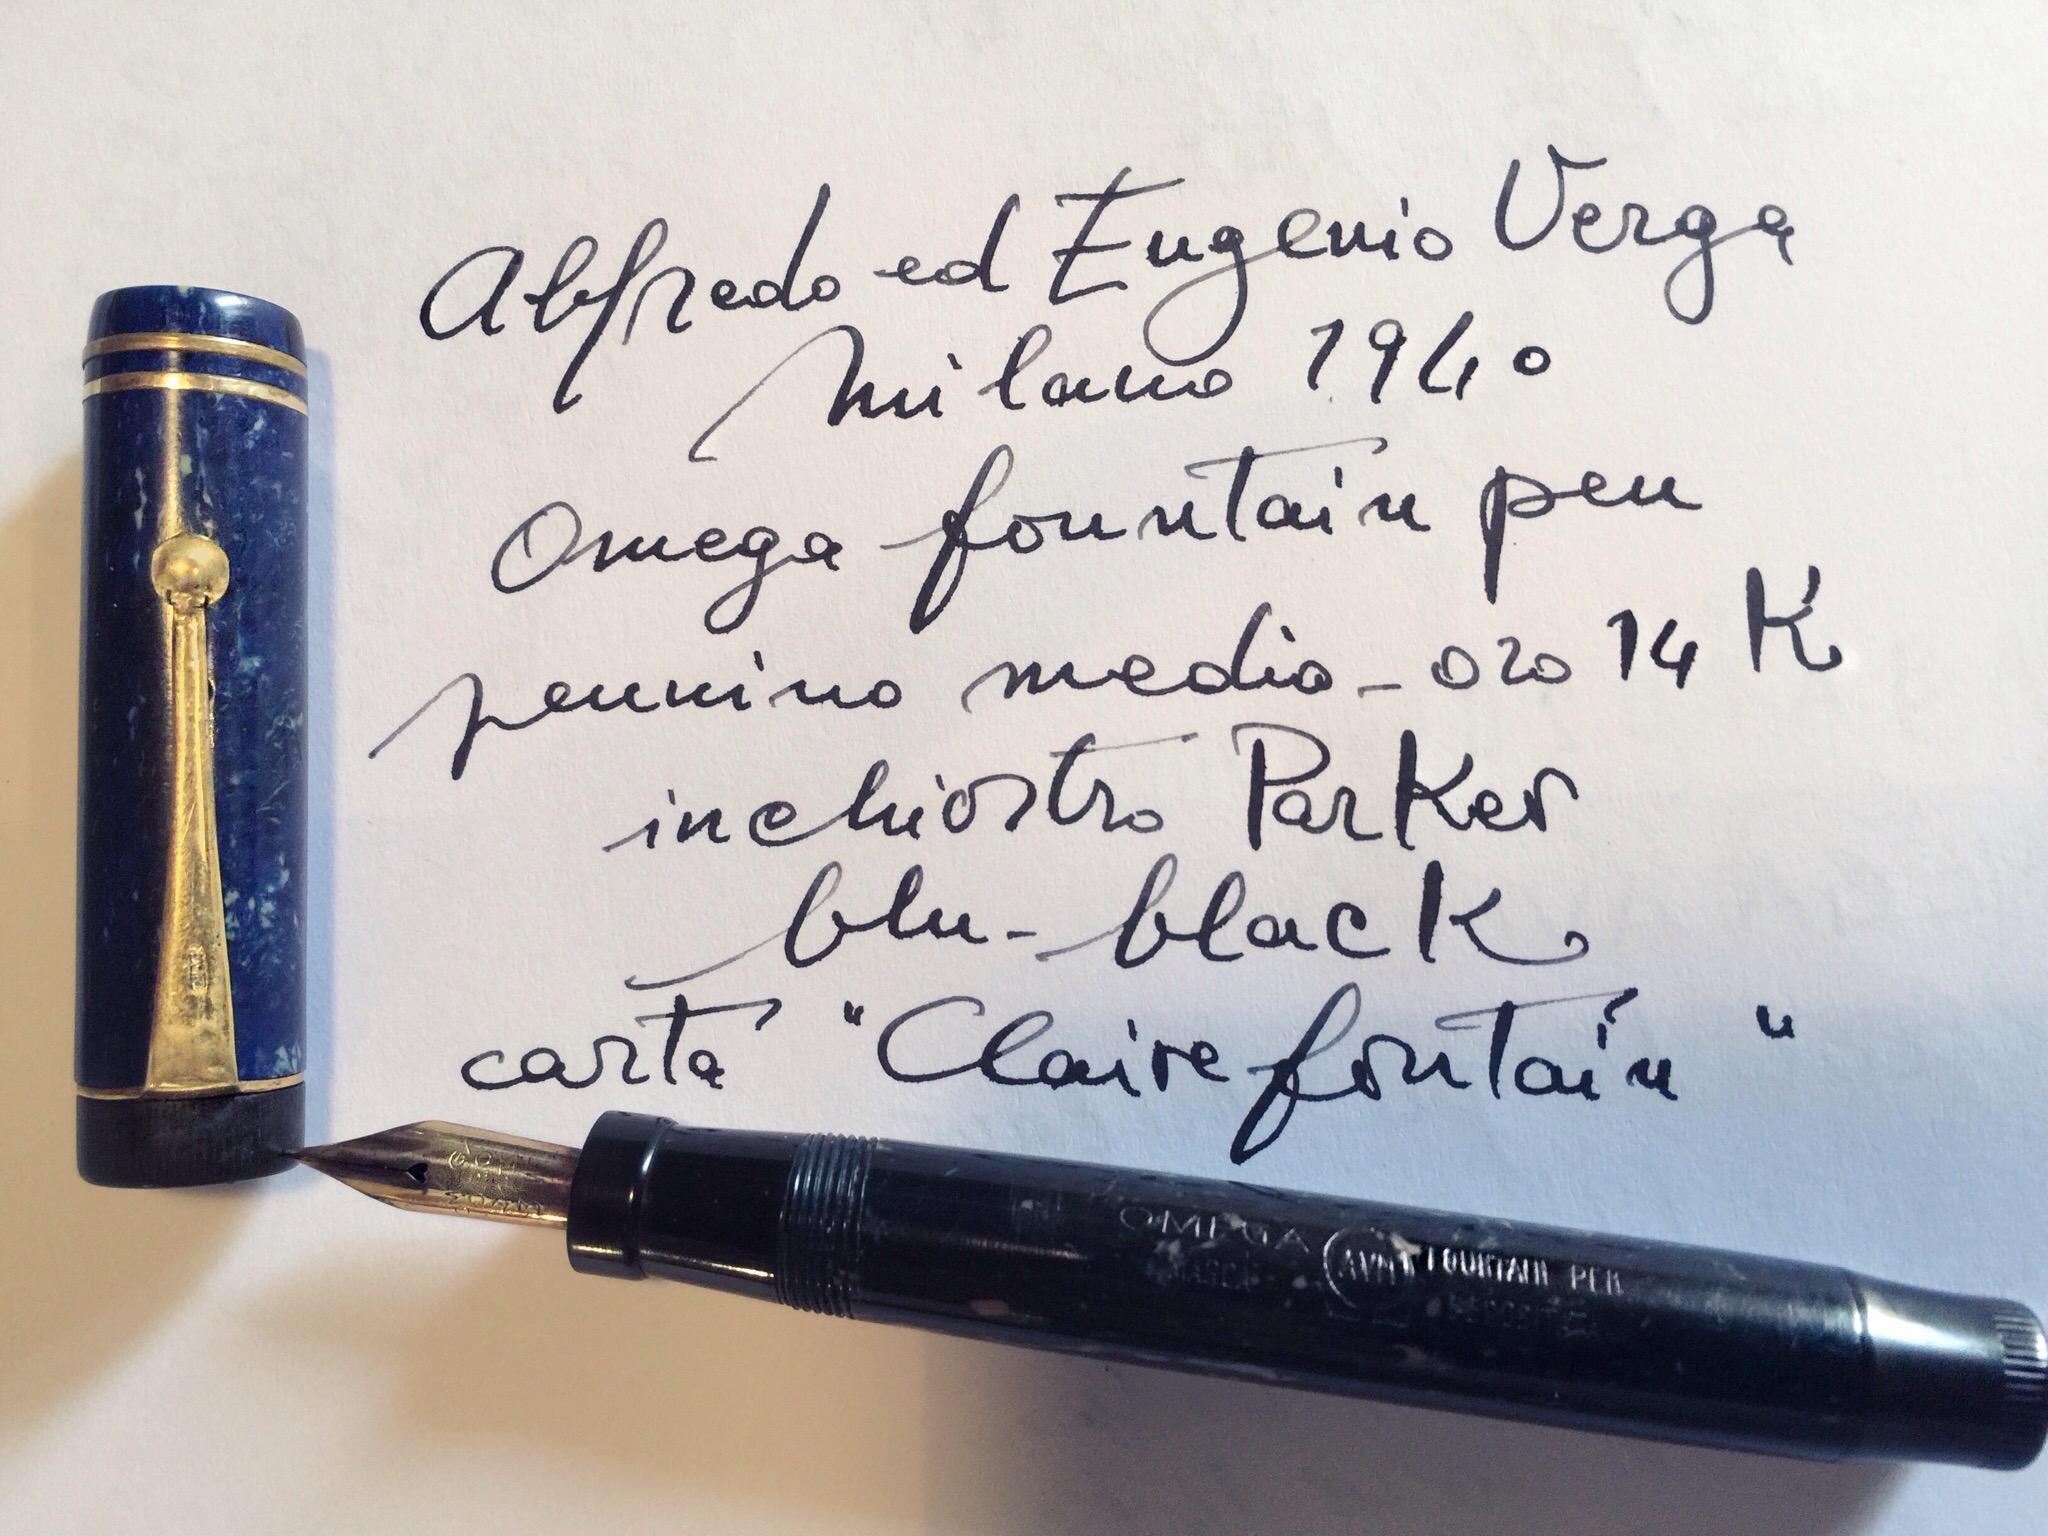 Alfredo ed Eugenio Verga
Milano 1940
Omega fountain pen
pennino medio - oro 14 K
inchiostro Parker
blu-black
carta "Clairefontain"
OMEGA FOUNTAIN PEN